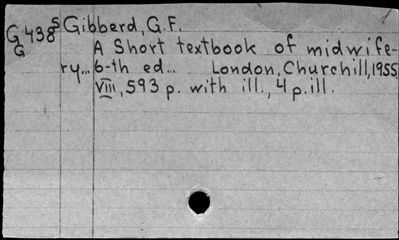 G 438 s Gibberd, G.F.
G A Short textbook of midwife-
ry... 6-th ed... London, Churchill, 1955
VIII, 593 p. with ill., 4 p. ill.